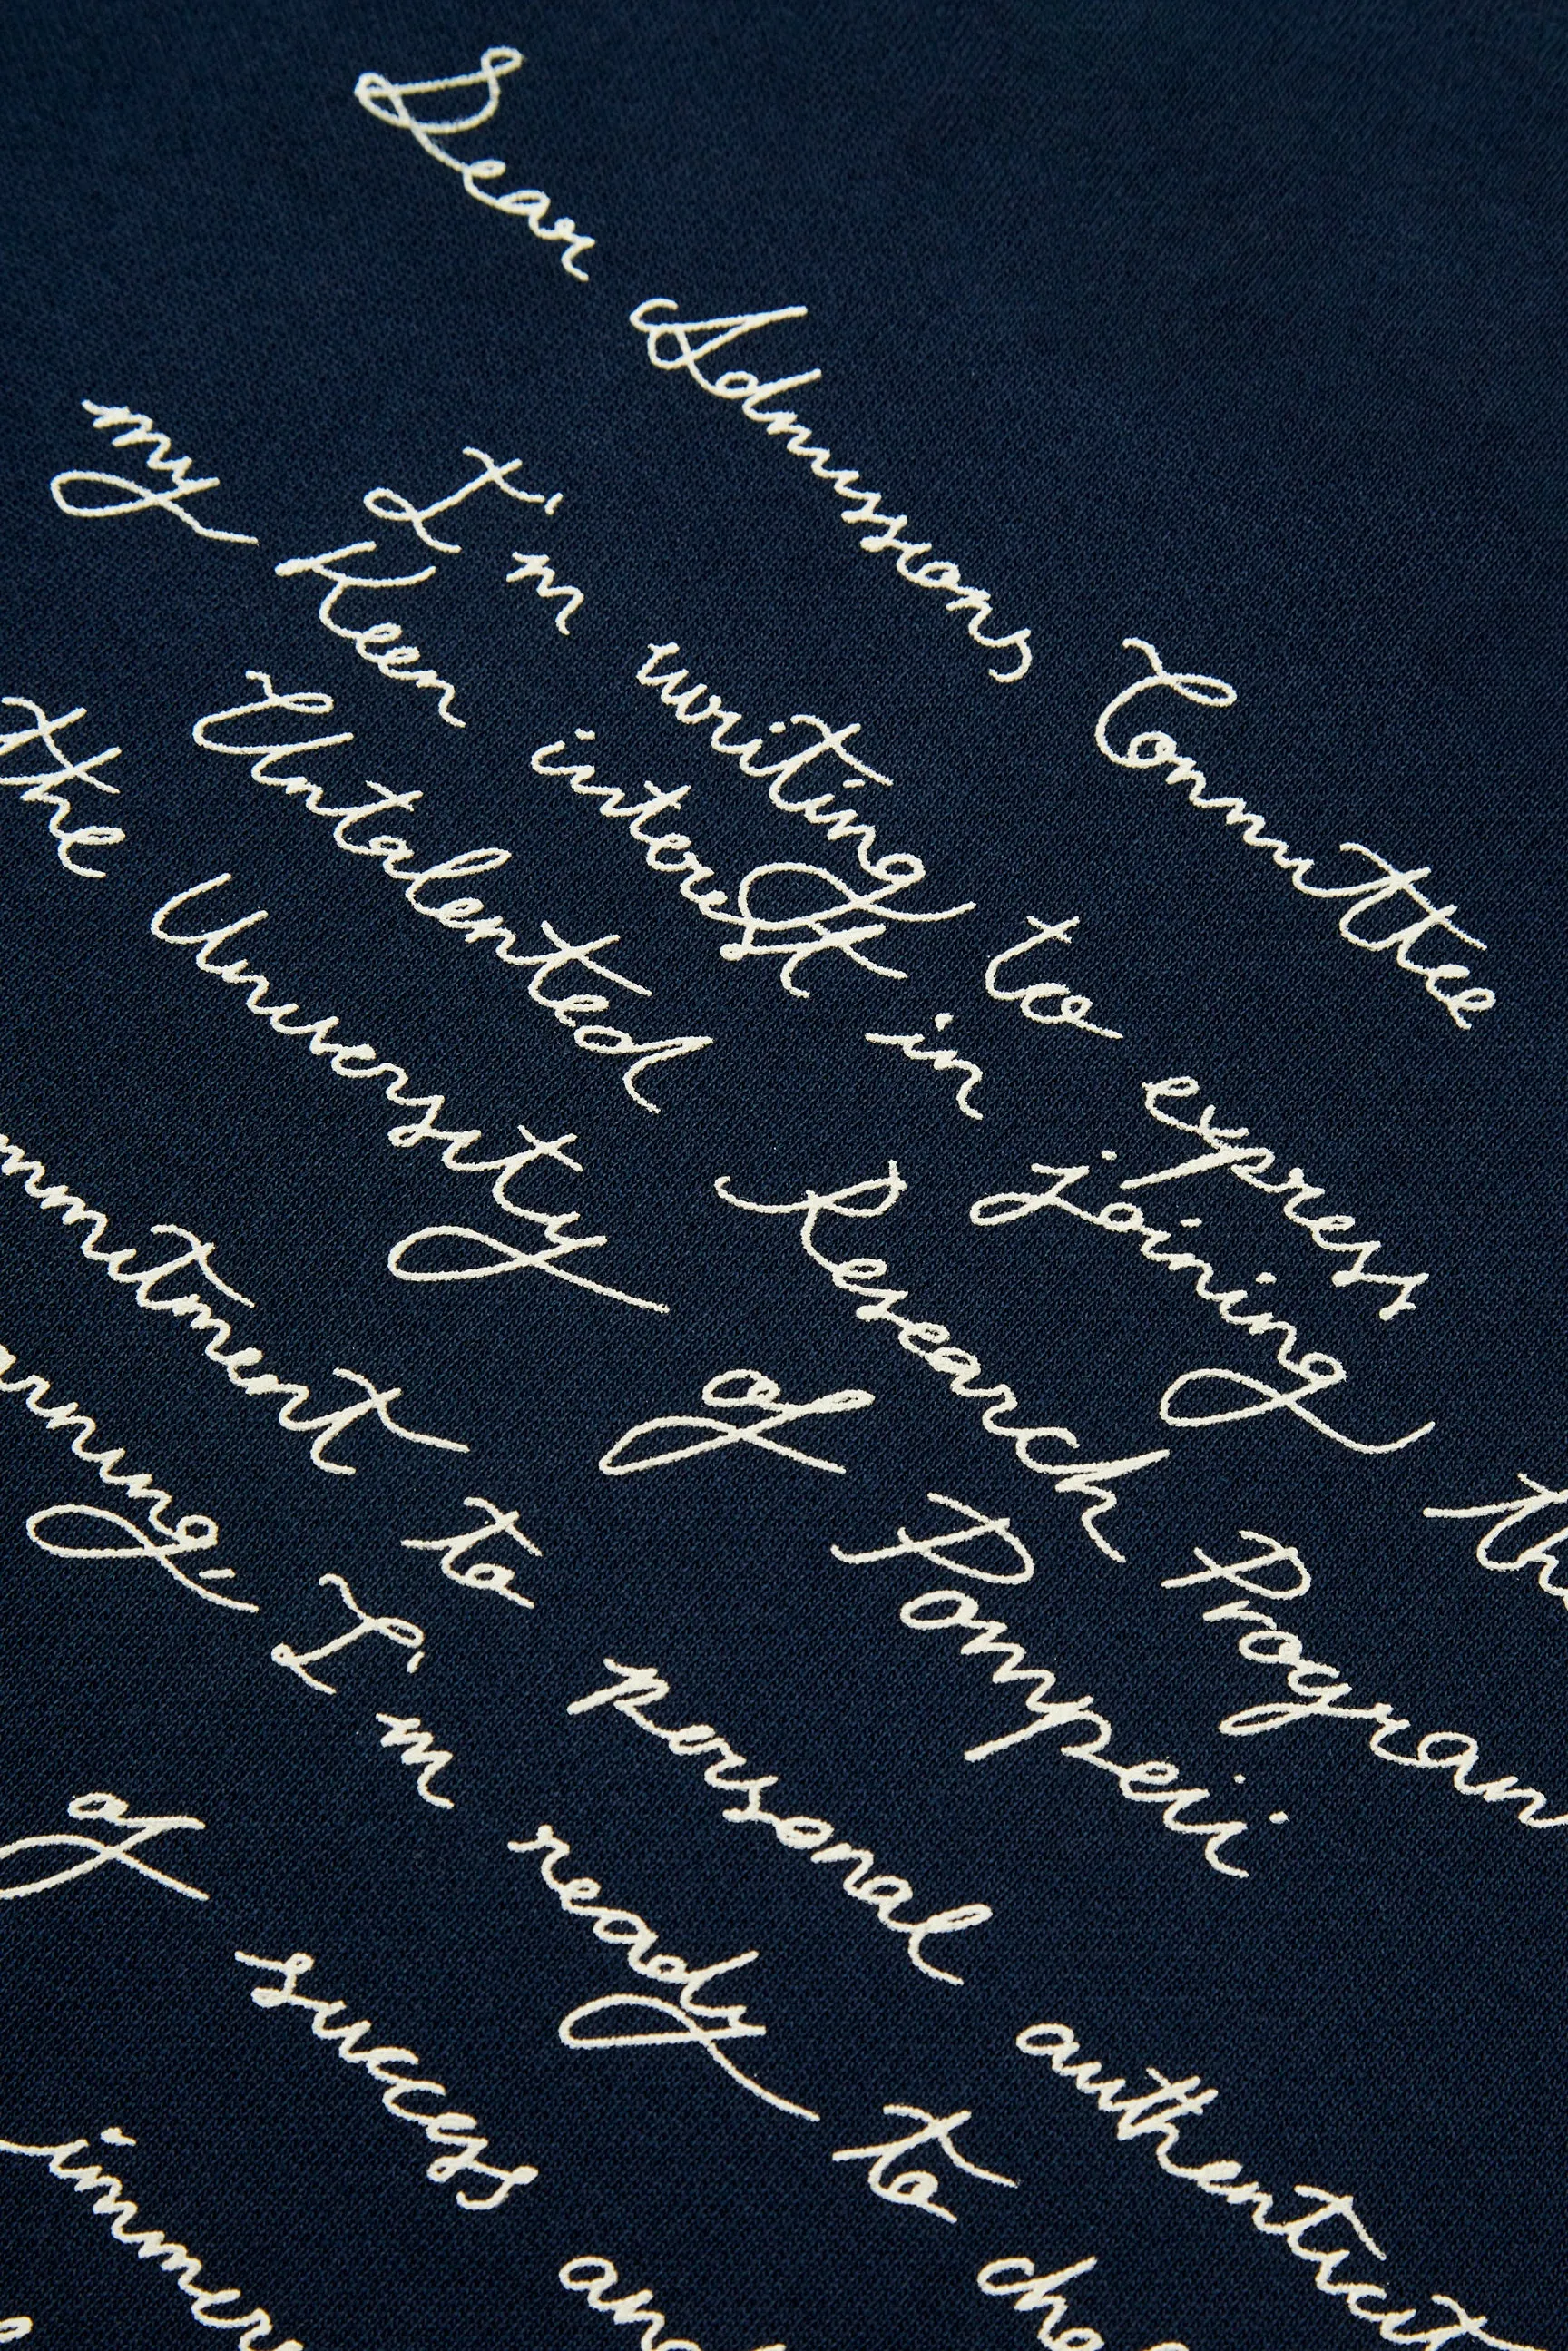 Dear Admissions Committee
I'm writing to express
my Keen interest in joining th
Untalented Research Program
the University of Pompeii
mmitment to personal authenticit
arning, I'm ready to
of success an
immers